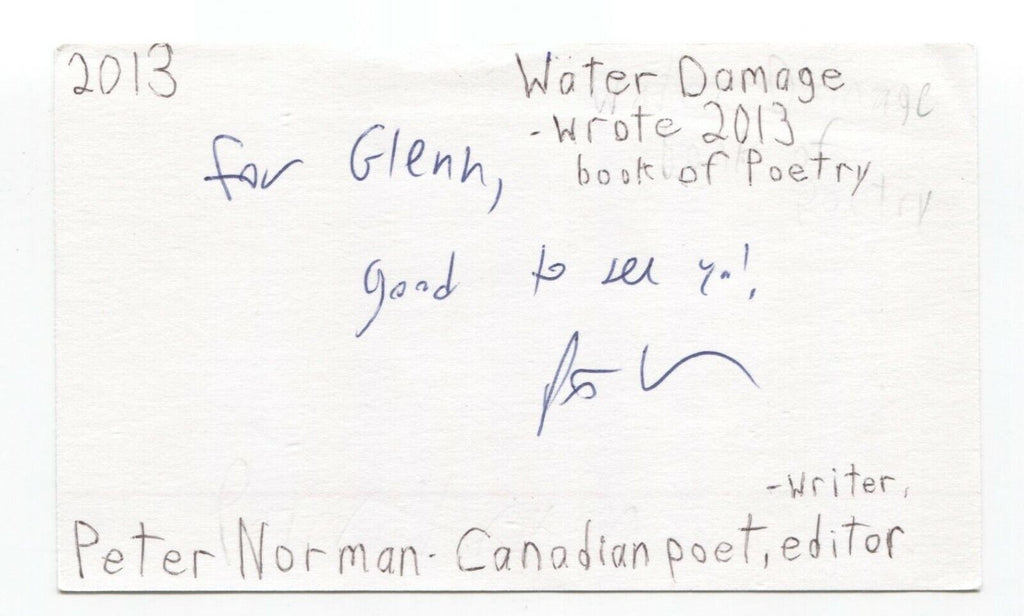 2013
Water Damage
- Wrote 2013
book of Poetry
for Glenn,
good to see you!
- Writer,
Peter Norman - Canadian poet, editor